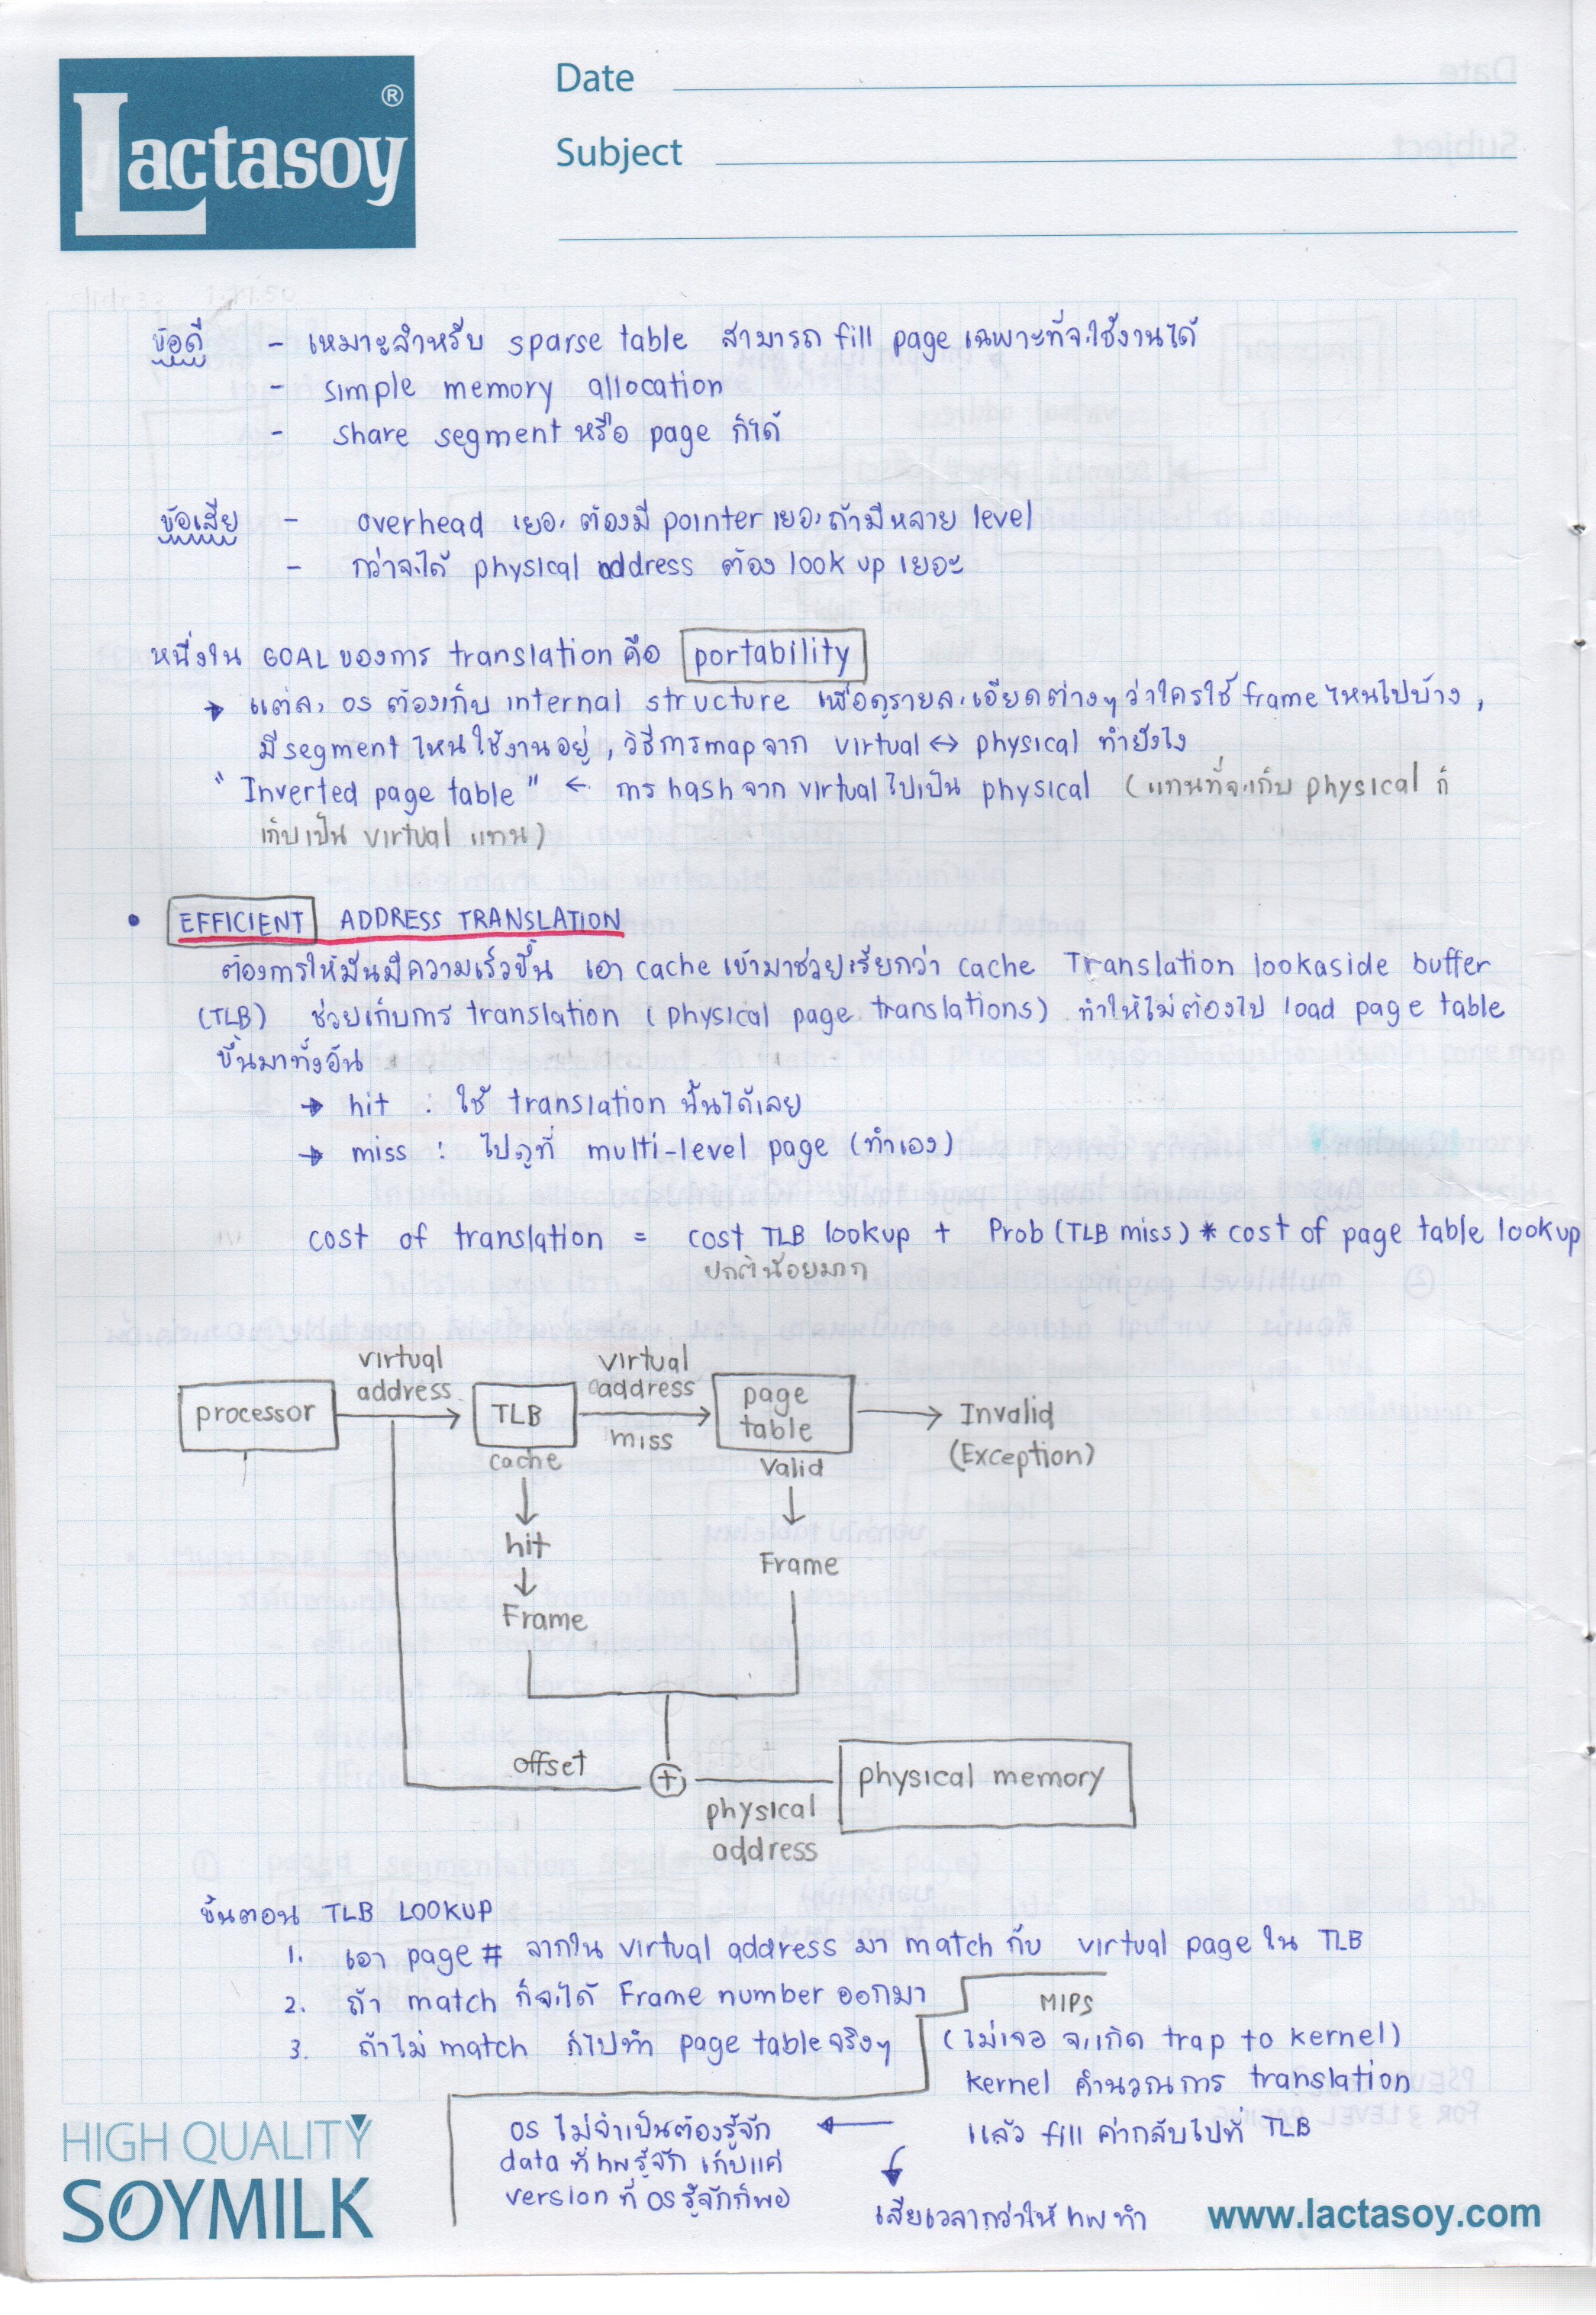 Lactasoy ®
Date
Subject
ข้อดี - เหมาะสำหรับ sparse table สามารถ fill page เฉพาะที่จะใช้งานได้
- simple memory allocation
- share segment หรือ page ก็ได้
ข้อเสีย - overhead เยอะ ต้องมี pointer เยอะถ้ามีหลาย level
- กว่าจะได้ physical address ต้อง look up เยอะ
หนึ่งใน GOAL ของการ translation คือ portability
→ แต่ละ OS ต้องเก็บ internal structure เพื่อดูรายละเอียดต่างๆ ว่าใครใช้ frame ไหนไปบ้าง,
มี segment ไหนใช้งานอยู่, วิธีการ map จาก virtual ↔ physical ทำยังไง
"Inverted page table" ← การ hash จาก virtual ไปเป็น physical (แทนที่จะเก็บ physical ก็
เก็บเป็น virtual แทน)
• EFFICIENT ADDRESS TRANSLATION
ต้องการให้มันมีความเร็วขึ้น เอา cache เข้ามาช่วยเรียกว่า cache Translation lookaside buffer
(TLB) ช่วยเก็บการ translation (physical page translations) ทำให้ไม่ต้องไป load page table
ขึ้นมาทั้งอัน
→ hit : ใช้ translation นั้นได้เลย
→ miss : ไปดูที่ multi-level page (ทำเอง)
cost of translation = cost TLB lookup + Prob (TLB miss) * cost of page table lookup
ปกติน้อยมาก
virtual address
virtual address
processor
TLB
miss
page table
Invalid
(Exception)
cache
Valid
hit
Frame
Frame
offset
+
physical memory
physical address
ขั้นตอน TLB LOOKUP
1. เอา page # จากใน virtual address มา match กับ virtual page ใน TLB
2. ถ้า match ก็จะได้ Frame number ออกมา
MIPS
3. ถ้าไม่ match ก็ไปทำ page table จริงๆ (ไม่เจอ จะเกิด trap to kernel)
kernel คำนวณการ translation
แล้ว fill ค่ากลับไปที่ TLB
OS ไม่จำเป็นต้องรู้จัก ←
data ที่ hw รู้จัก เก็บแค่
version ที่ OS รู้จักก็พอ
เสียเวลากว่าให้ hw ทำ
HIGH QUALITY
SOYMILK
www.lactasoy.com